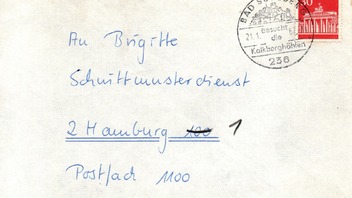 BAD SEGEBERG
Besucht
die
Kalkberghöhlen
236
30
An Brigitte
Schnittmusterdienst
2 Hamburg 100 1
Postfach 1100